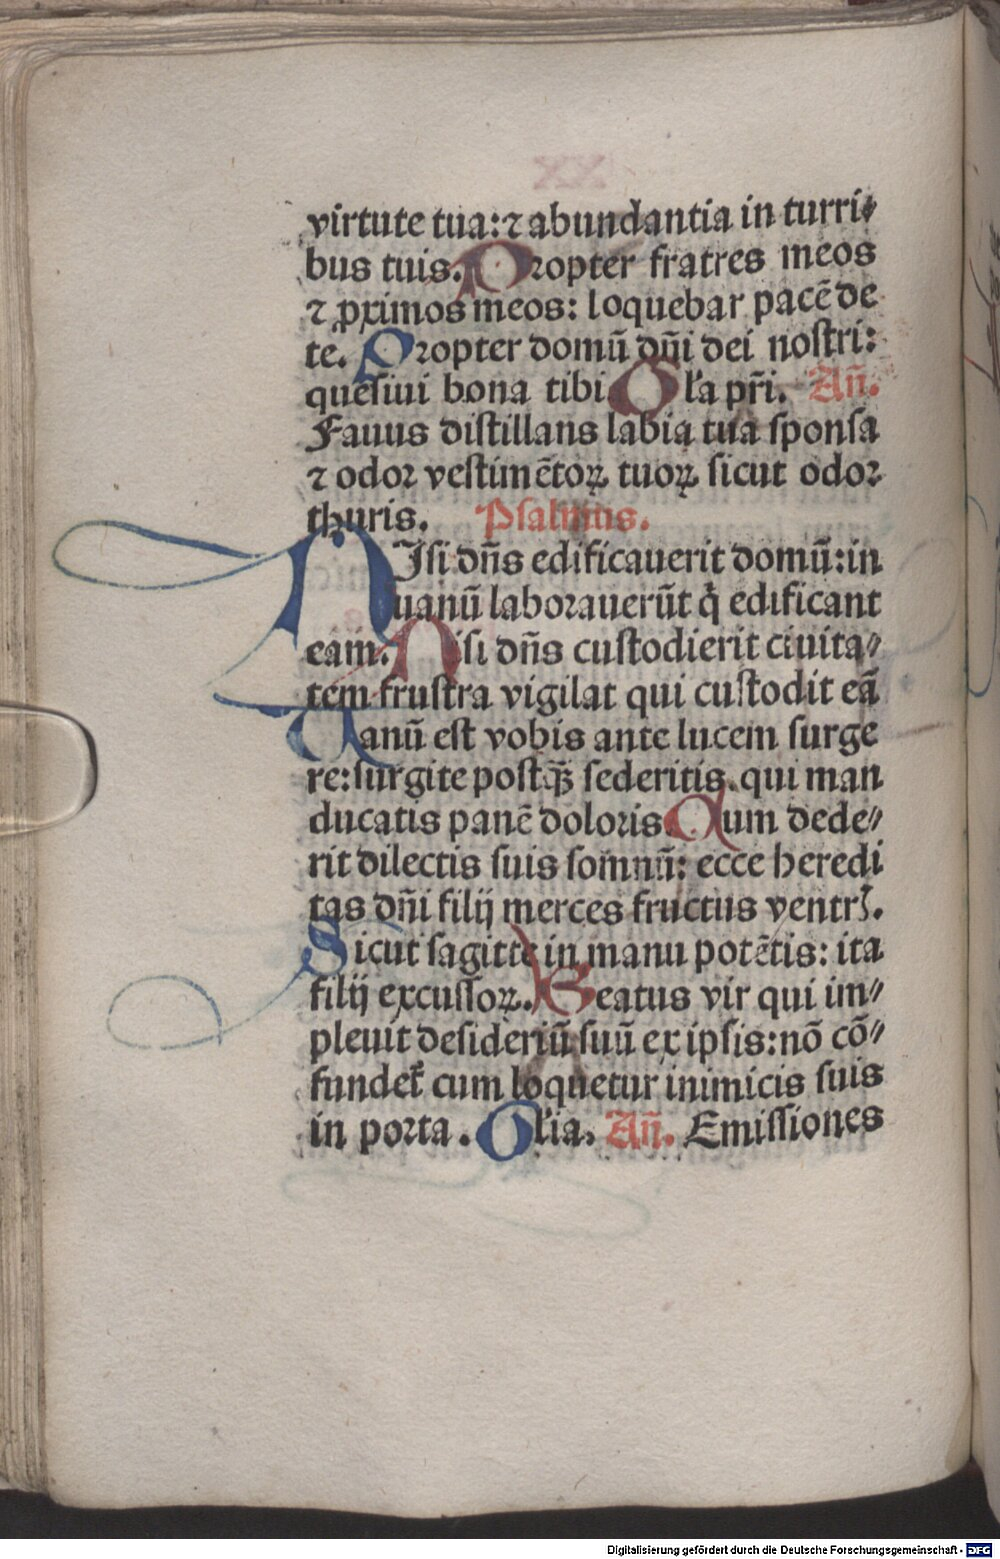 virtute tua: ⁊ abundantia in turri⸗
bus tuis. Propter fratres meos
⁊ ꝓximos meos: loquebar pacē de
te. Propter domū dn̄i dei nostri:
quesiui bona tibi. Gl'a pr̄i. An̄.
Fauus distillans labia tua sponsa
⁊ odor vestimētoꝝ tuoꝝ sicut odor
thuris. Psalmus.
NIsi dn̄s edificauerit domū: in
uanū laborauerūt q̇ edificant
eam. Nisi dn̄s custodierit ciuita⸗
tem frustra vigilat qui custodit eā
Uanū est vobis ante lucem surge
re: surgite postq̄ꝫ sederitis. qui man
ducatis panē doloris. Cum dede⸗
rit dilectis suis somnū: ecce heredi
tas dn̄i filij merces fructus ventrꝭ.
Sicut sagitte in manu potētis: ita
filij excussoꝝ. Beatus vir qui im⸗
pleuit desideriū suū ex ipsis: nō cō⸗
fundet᷑ cum loquetur inimicis suis
in porta. Gl'ia. An̄. Emissiones
Digitalisierung gefördert durch die Deutsche Forschungsgemeinschaft - DFG